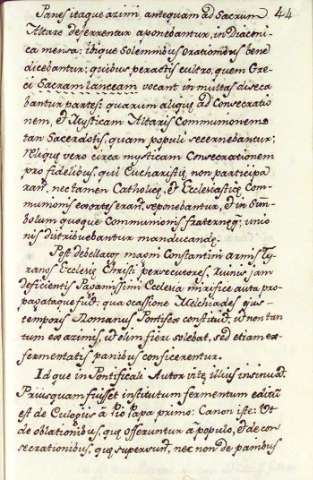 44
Panes itaque azimi antequam ad Sacrum
Altare deferrentur aponebantur, in Diaconi-
ca mensa: ibique Solemnibus orationibus bene
dicebantur; quibus peractis cultro, quem Gre-
ci Sacram lanceam vocant in multas diseca
bantur partes: quarum aliquę ad Consecratio
nem, et Mysticam Altaris Communionem
tan Sacerdotis, quam populi secernebantur;
Reliquę vero circa mysticam Consecrationem
pro fidelibus, qui Eucharistię non participa
rant, nec tamen Catholicę, et Ecclesiasticę Com-
munionis exortes erant, seponebantur, et in Sim-
bolum quoque Communionis, fraternęq; unio
nis distribuebantur manducandę.
Post debellatos maoni Constantini armis Ty-
ranos Ecclesię Christi persecutores, Numis jam
deficientis Paganissimi Ecclesia mirifice aucta pro-
pagataque fuit: qua ocassione Melchiades ejus-
temporis Romanus Pontifex constituit, ut non tan
tum ex azimis, ut olim fieri solebat, sed etiam ex
fermentatis panibus conficerentur.
Id que in Pontificali Autor vitę illius insinuat.
Priusquam fuisset institutum fermentum editus
est de Eulogiis a Pio Papa primo: Canon iste: Ut
de oblationibus, quę offeruntur a populo, et de con
secrationibus, quę supersunt, nec non de panibus